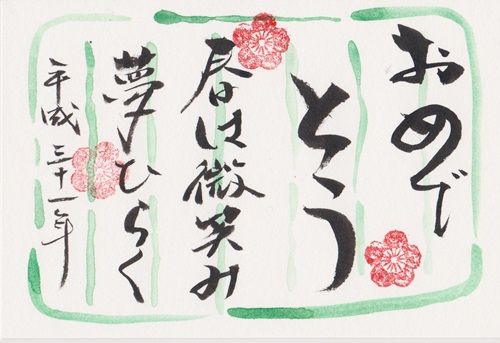 おめで
とう
春は微笑み
夢ひらく
平成三十一年